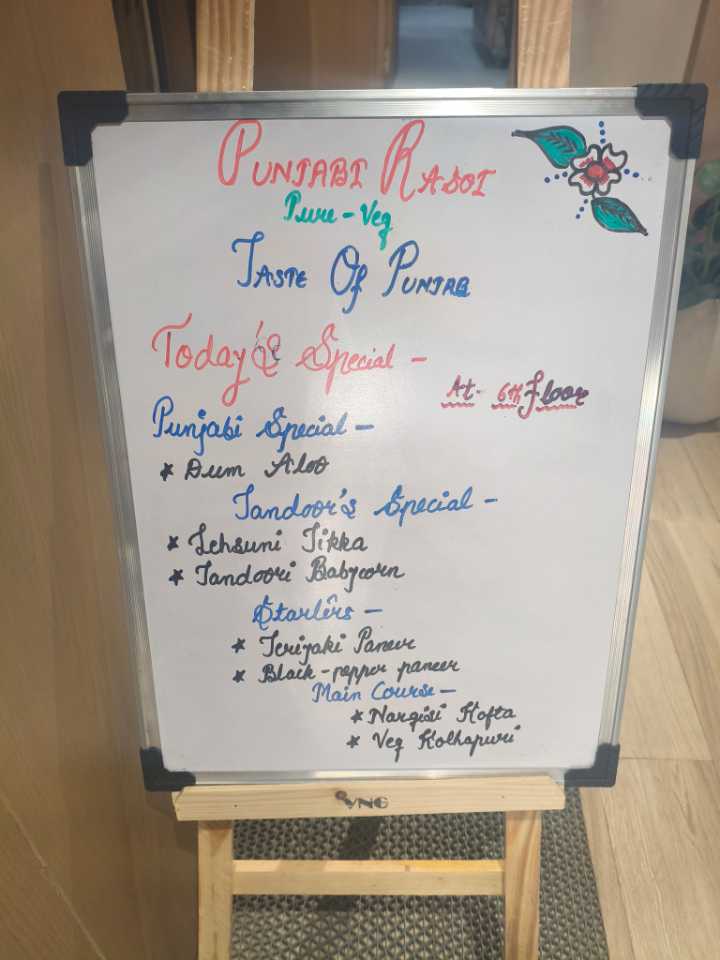 PUNJABI RASOI
Pure-Veg
TASTE Of PUNJAB
Today's Special -
At- 6th floor
Punjabi Special -
* Dum Aloo
Tandoor's Special -
* Lehsuni Tikka
* Tandoori Babycorn
Starters -
* Teriyaki Paneer
* Black-pepper paneer
Main Course -
* Nargisi Kofta
* Veg Kolhapuri
VNG